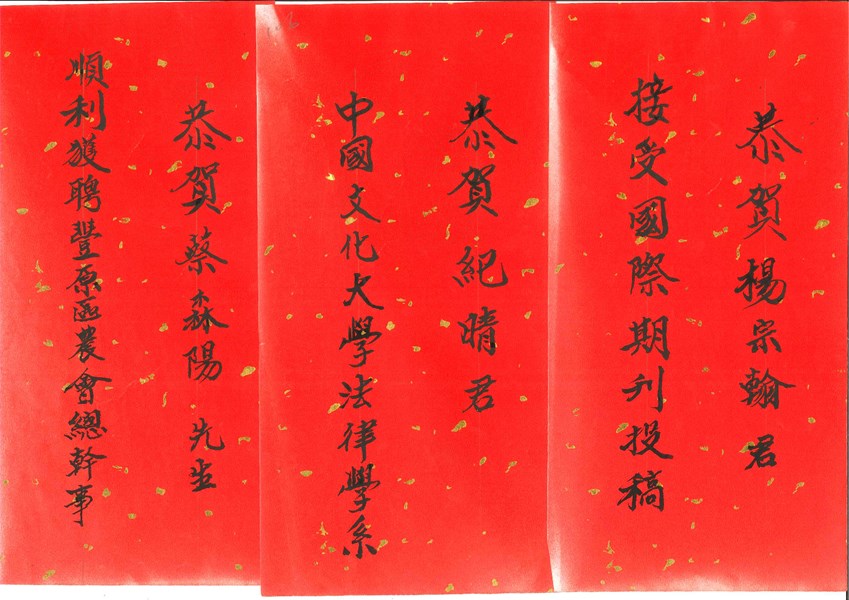 恭賀楊宗翰君
接受國際期刊投稿
恭賀紀晴君
中國文化大學法律學系
恭賀蔡森陽先生
順利獲聘豐原區農會總幹事